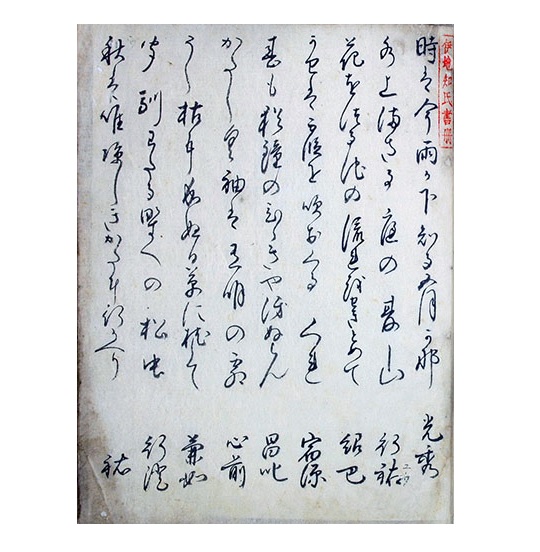 伊地知氏書冊
時は今雨か下知る五月かな　光秀
水上まさる庭の夏山　行祐
花おつる池の流をせきとめて　紹巴
かせは霞を吹おくるくれ　宥源
春も猶鐘のひゝきや冴ぬらん　昌叱
かたしく袖は有明の霜　心前
うら枯に成ぬる草に枕して　兼如
聞馴にたる野への松虫　行澄
秋は唯涼しきかたに行かへり　祐